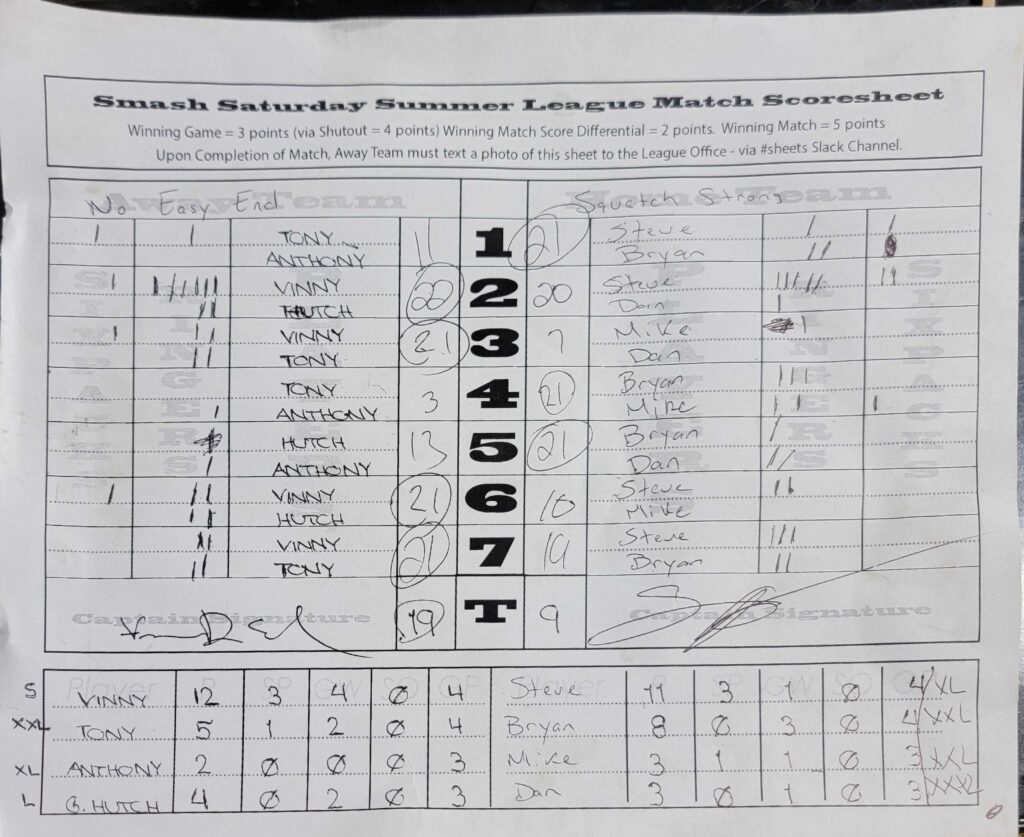 Smash Saturday Summer League Match Scoresheet
Winning Game = 3 points (via Shutout = 4 points) Winning Match Score Differential = 2 points. Winning Match = 5 points
Upon Completion of Match, Away Team must text a photo of this sheet to the League Office - via #sheets Slack Channel.
Away Team Home Team
No Easy End Squatch Strong
TONY 11 1 21 Steve
ANTHONY Bryan
VINNY 22 2 20 Steve
HUTCH Dan
VINNY 21 3 7 Mike
TONY Dan
TONY 3 4 21 Bryan
ANTHONY Mike
HUTCH 13 5 21 Bryan
ANTHONY Dan
VINNY 21 6 10 Steve
HUTCH Mike
VINNY 21 7 19 Steve
TONY Bryan
Captain Signature 19 T 9 Captain Signature
Player P SP GW SO GP Player P SP GW SO GP
S VINNY 12 3 4 Ø 4 Steve 11 3 1 Ø 4/XL
XXL TONY 5 1 2 Ø 4 Bryan 8 Ø 3 Ø 4 XXL
XL ANTHONY 2 Ø Ø Ø 3 Mike 3 1 1 Ø 3 XXL
L G. HUTCH 4 Ø 2 Ø 3 Dan 3 Ø 1 Ø 3 XXXL